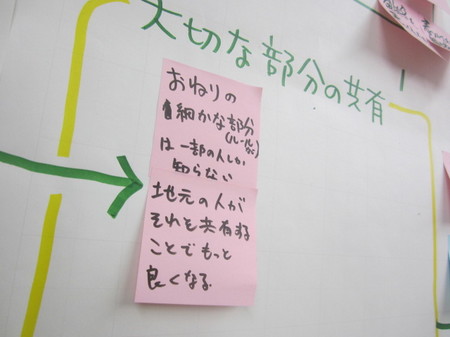 大切な部分の共有
おねりの
細かな部分
(ルールなど)
は一部の人しか
知らない
地元の人が
それを共有する
ことでもっと
良くなる